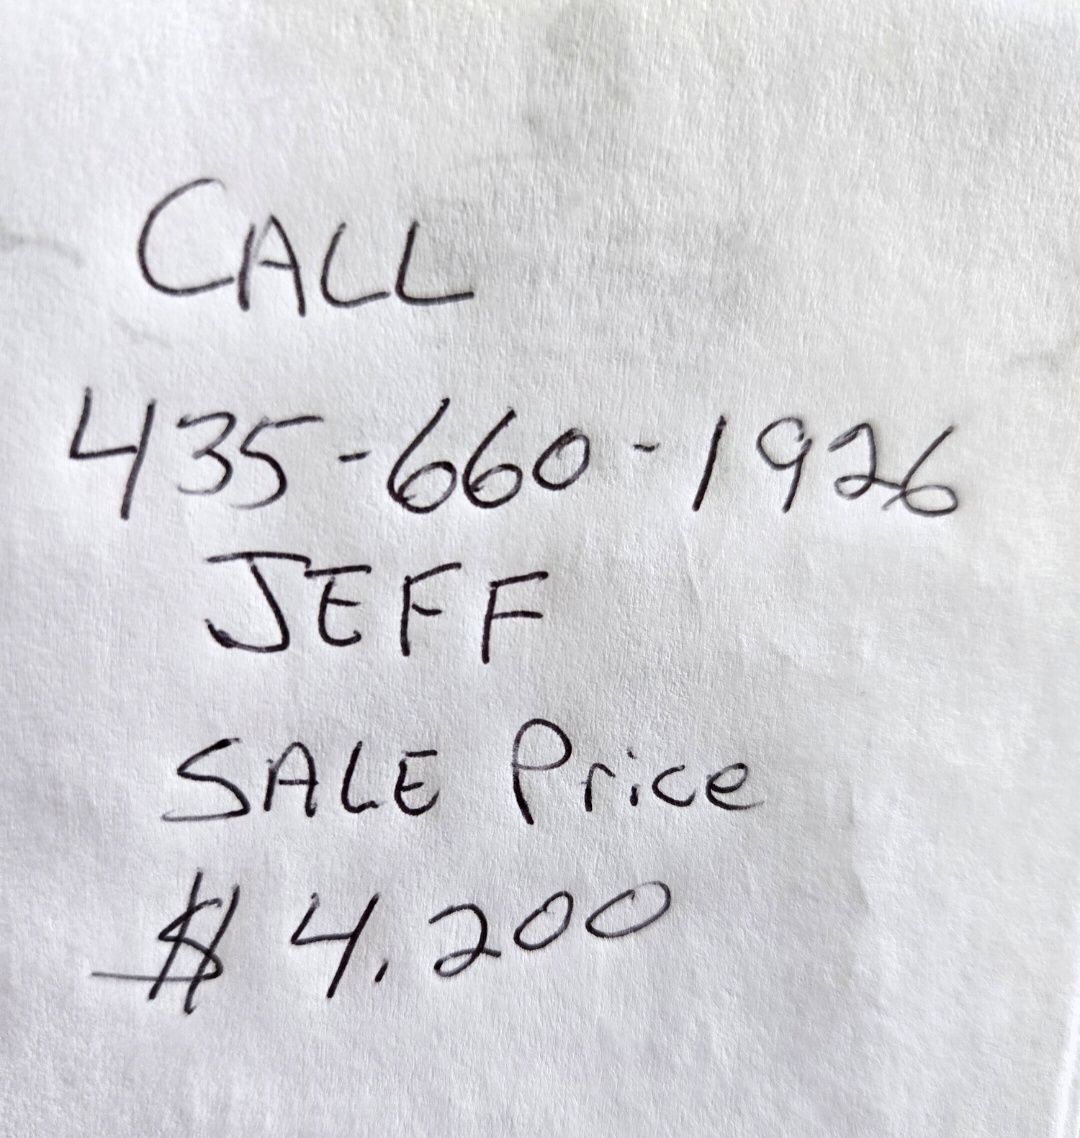 CALL
435-660-1926
JEFF
SALE Price
$4,200